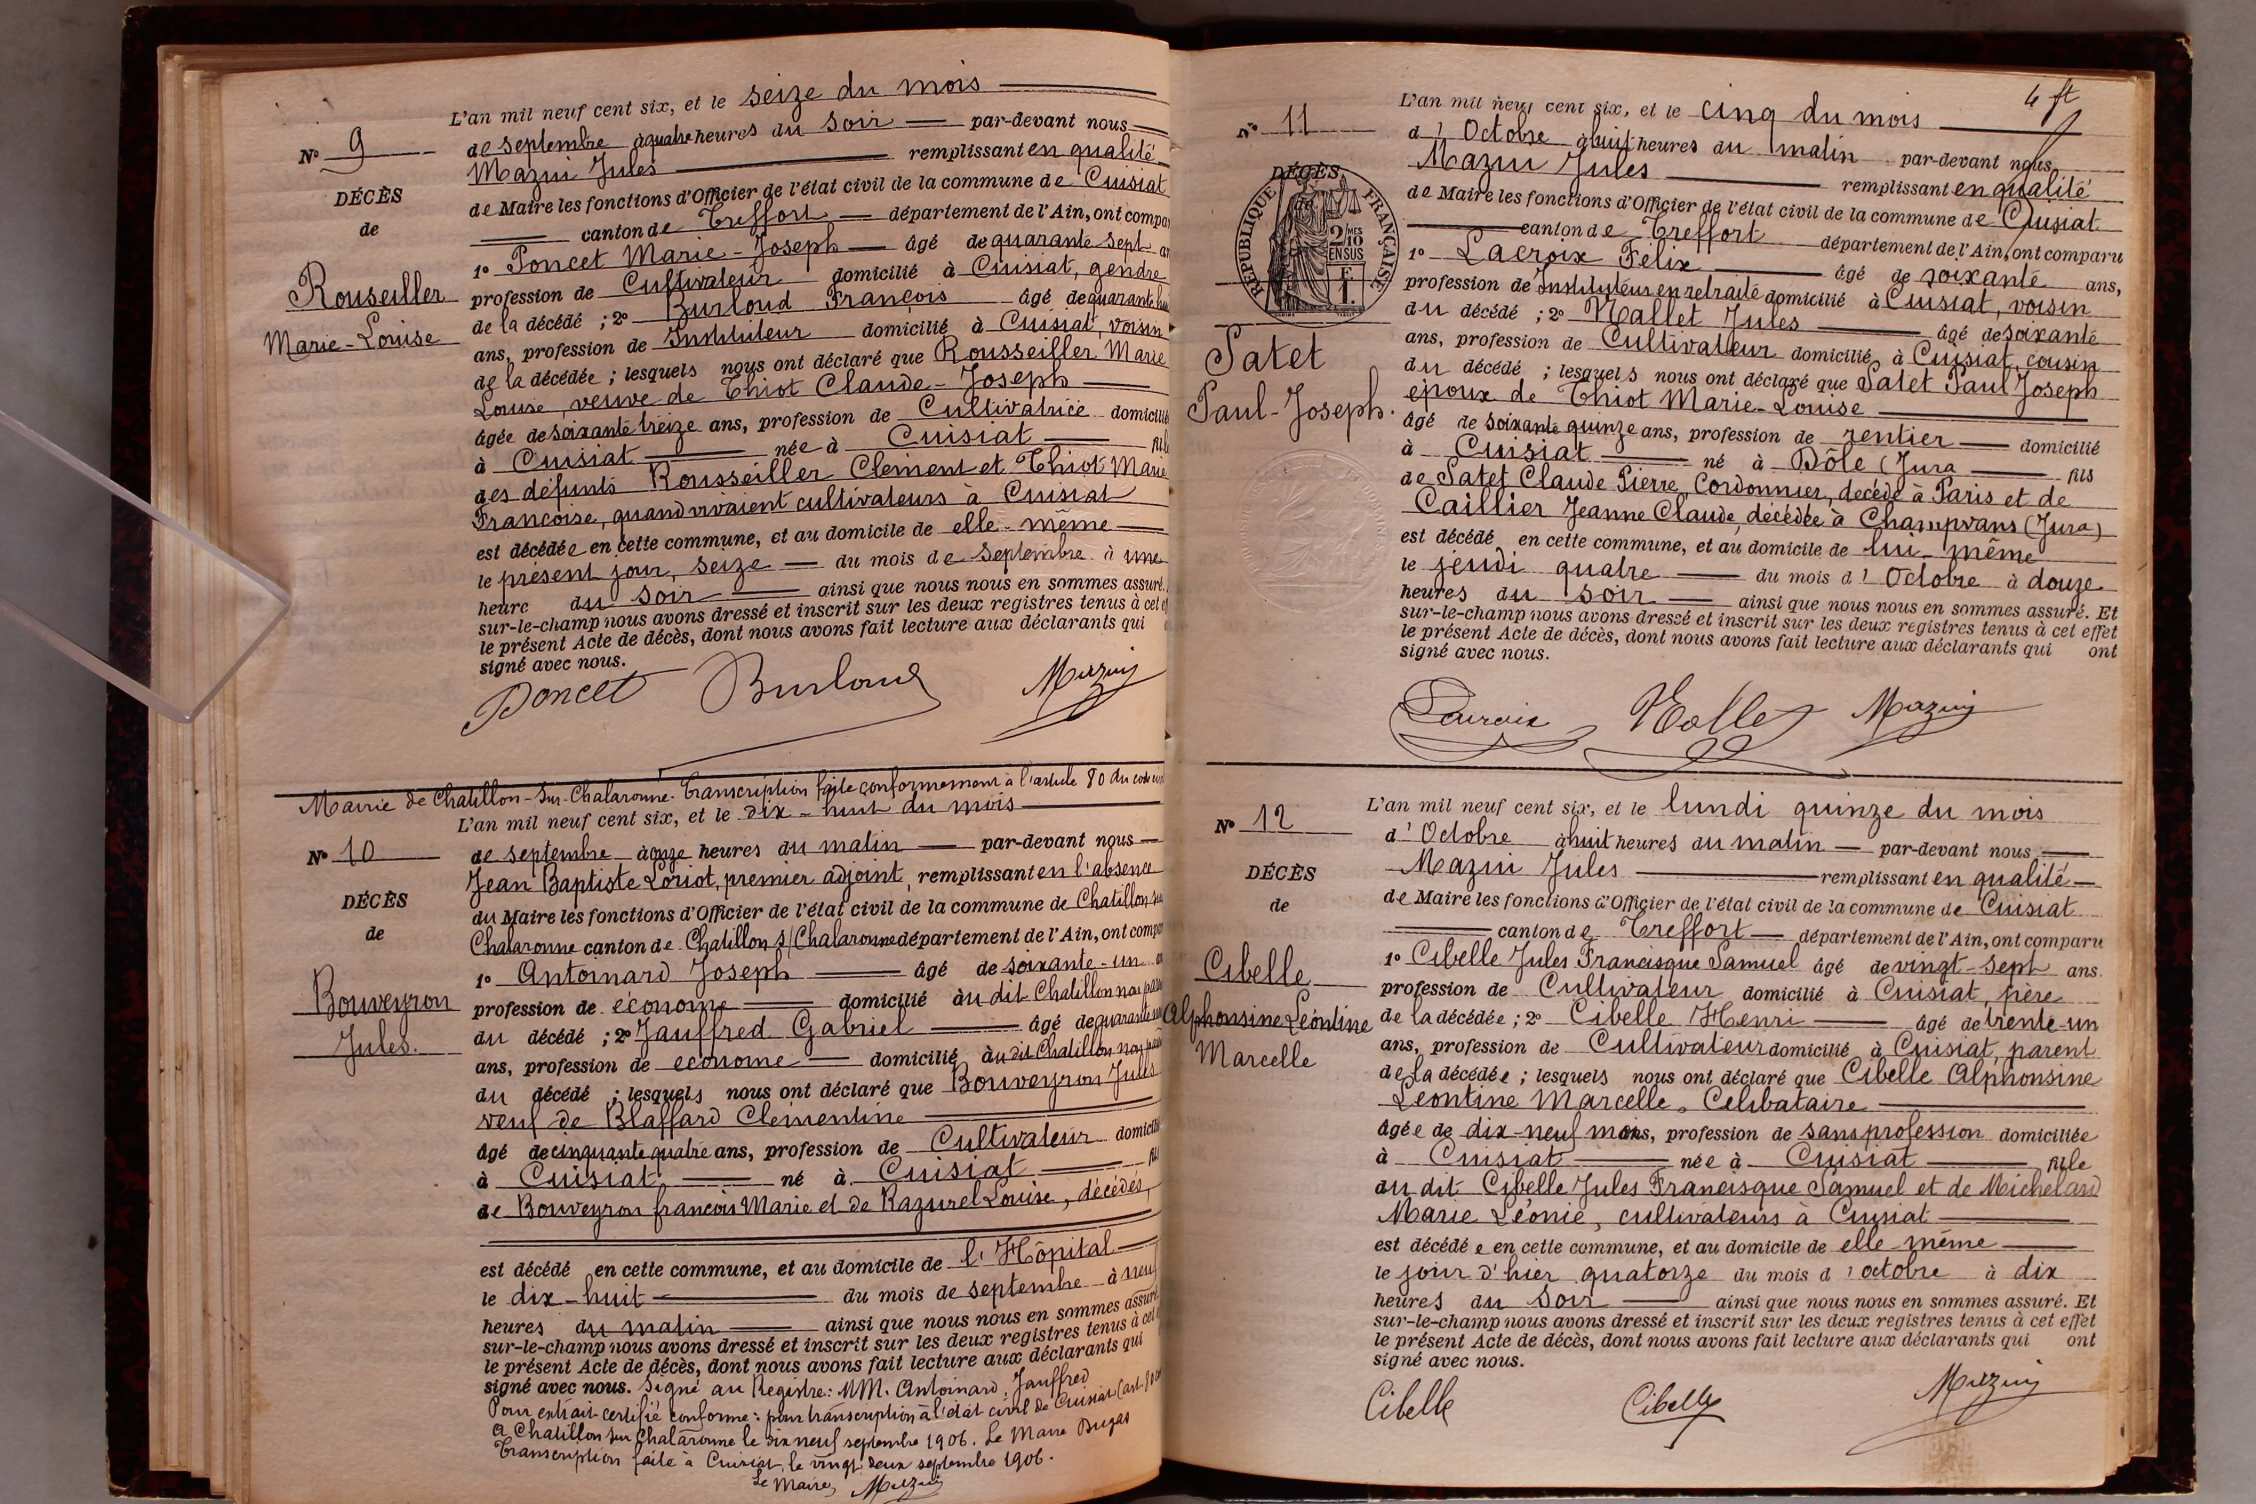 L'an mil neuf cent six, et le seize du mois
de septembre à quatre heures du soir par-devant nous
Mazui Jules remplissant en qualité
de Maire les fonctions d'Officier de l'état civil de la commune de Cuisiat
canton de Treffort département de l'Ain, ont compar
1º Poncet Marie-Joseph âgé de quarante sept
profession de Cultivateur domicilié à Cuisiat, gendre
de la décédé ; 2º Burloud François âgé de quarante
ans, profession de Instituteur domicilié à Cuisiat, voisin
de la décédée ; lesquels nous ont déclaré que Rousseiller Marie
Louise, veuve de Thiot Claude-Joseph
âgée de soixante treize ans, profession de Cultivatrice domicilié
à Cuisiat née à Cuisiat
des défunts Rousseiller Clément et Thiot Marie
Françoise, quand vivaient cultivateurs à Cuisiat
est décédée en cette commune, et au domicile de elle-même
le présent jour, seize du mois de septembre à une
heure du soir ainsi que nous nous en sommes assuré.
sur-le-champ nous avons dressé et inscrit sur les deux registres tenus à cet
le présent Acte de décès, dont nous avons fait lecture aux déclarants qui
signé avec nous.
Poncet Burloud Mazui
Nº 9
DÉCÈS
de
Rouseiller
Marie-Louise
Mairie de Chatillon-sur-Chalaronne. Transcription faite conformément à l'article 80 du code
L'an mil neuf cent six, et le dix-huit du mois
de septembre à onze heures du matin par-devant nous
Jean Baptiste Loriot, premier adjoint, remplissant en l'absence
du Maire les fonctions d'Officier de l'état civil de la commune de Chatillon
Chalaronne canton de Chatillon s/Chalaronne département de l'Ain, ont compar
1º Antoinard Joseph âgé de soixante-un
profession de économe domicilié à u dit Chatillon non
du décédé ; 2º Jauffred Gabriel âgé de quarante
ans, profession de économe domicilié à u dit Chatillon non
du décédé ; lesquels nous ont déclaré que Bouveyron Jules
veuf de Blaffard Clémentine
âgé de cinquante quatre ans, profession de Cultivateur domicilié
à Cuisiat né à Cuisiat
de Bouveyron françois Marie et de Razurel Louise, décédés,
est décédé en cette commune, et au domicile de l'Hôpital
le dix-huit du mois de septembre à neuf
heures du matin ainsi que nous nous en sommes assuré
sur-le-champ nous avons dressé et inscrit sur les deux registres tenus à cet
le présent Acte de décès, dont nous avons fait lecture aux déclarants qui
signé avec nous. Signé au Registre: MM. Antoinard, Jauffred
Pour extrait certifié conforme: pour transcription à l'état civil de Cuisiat
A Chatillon sur Chalaronne le dix neuf septembre 1906. Le Maire Dugas
Transcription faite à Cuisiat, le vingt deux septembre 1906.
Le Maire, Mazui
Nº 10
DÉCÈS
de
Bouveyron
Jules.
4 ft
L'an mil neuf cent six, et le cinq du mois
d'Octobre à huit heures du matin par-devant nous
Mazui Jules remplissant en qualité
de Maire les fonctions d'Officier de l'état civil de la commune de Cuisiat
canton de Treffort département de l'Ain, ont comparu
1º Lacroix Félix âgé de soixante ans,
profession de Instituteur en retraite domicilié à Cuisiat, voisin
du décédé ; 2º Nallet Jules âgé de soixante
ans, profession de Cultivateur domicilié à Cuisiat, cousin
du décédé ; lesquels nous ont déclaré que Satet Paul Joseph
époux de Thiot Marie-Louise
âgé de soixante quinze ans, profession de rentier domicilié
à Cuisiat né à Dôle (Jura fils
de Satet Claude Pierre, Cordonnier, décédé à Paris et de
Caillier Jeanne Claude, décédée à Champvans (Jura)
est décédé en cette commune, et au domicile de lui-même
le jeudi quatre du mois d'Octobre à douze
heures du soir ainsi que nous nous en sommes assuré. Et
sur-le-champ nous avons dressé et inscrit sur les deux registres tenus à cet effet
le présent Acte de décès, dont nous avons fait lecture aux déclarants qui ont
signé avec nous.
Lacroix Nallet Mazui
Nº 11
DÉCÈS
RÉPUBLIQUE FRANÇAISE
2/10
MES
EN SUS
Satet
Paul-Joseph.
L'an mil neuf cent six, et le lundi quinze du mois
d'Octobre à huit heures du matin par-devant nous
Mazui Jules remplissant en qualité
de Maire les fonctions d'Officier de l'état civil de la commune de Cuisiat
canton de Treffort département de l'Ain, ont comparu
1º Cibelle Jules Francisque Samuel âgé de vingt-sept ans.
profession de Cultivateur domicilié à Cuisiat, père
de la décédée ; 2º Cibelle Henri âgé de trente-un
ans, profession de Cultivateur domicilié à Cuisiat, parent
de la décédée ; lesquels nous ont déclaré que Cibelle Alphonsine
Léontine Marcelle, Célibataire
âgée de dix-neuf mois, profession de sans profession domiciliée
à Cuisiat née à Cuisiat fille
du dit Cibelle Jules Francisque Samuel et de Michelard
Marie Léonie, cultivateurs à Cuisiat
est décédée en cette commune, et au domicile de elle-même
le jour d'hier quatorze du mois d'octobre à dix
heures du soir ainsi que nous nous en sommes assuré. Et
sur-le-champ nous avons dressé et inscrit sur les deux registres tenus à cet effet
le présent Acte de décès, dont nous avons fait lecture aux déclarants qui ont
signé avec nous.
Cibelle Cibelle Mazui
Nº 12
DÉCÈS
de
Cibelle
Alphonsine Léontine
Marcelle